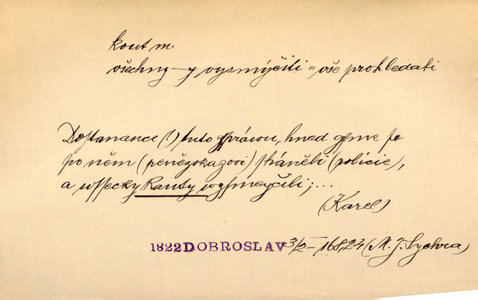 kout m.
všechny –y vysmýčiti = vše prohledati
Dostanance (!) tuto zprávou, hned gsme se
po něm (penězokazovi) sháněli (policie),
a wssecky Kauty wysmeyčili; ...
(Karel)
1822 DOBROSLAV 3/2 – 168,24 (M. J. Sychra)